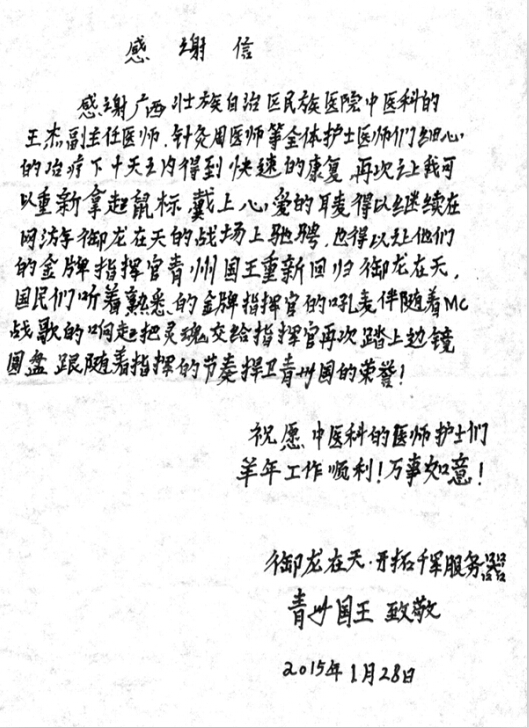 感谢信
感谢广西壮族自治区民族医院中医科的
王杰副主任医师.针灸周医师等全体护士医师们细心
的治疗下十天之内得到快速的康复,再次让我可
以重新拿起鼠标,戴上心爱的耳麦得以继续在
网游御龙在天的战场上驰骋,也得以让他们
的金牌指挥官青州国王重新回归御龙在天,
国民们听着熟悉的金牌指挥官的吼麦伴随着MC
战歌的响起把灵魂交给指挥官再次踏上边镜
圆盘跟随着指挥的节奏捍卫青州国的荣誉!
祝愿中医科的医师护士们
羊年工作顺利!万事如意!
御龙在天·开拓 服务器
青州国王 致敬
2015年1月28日